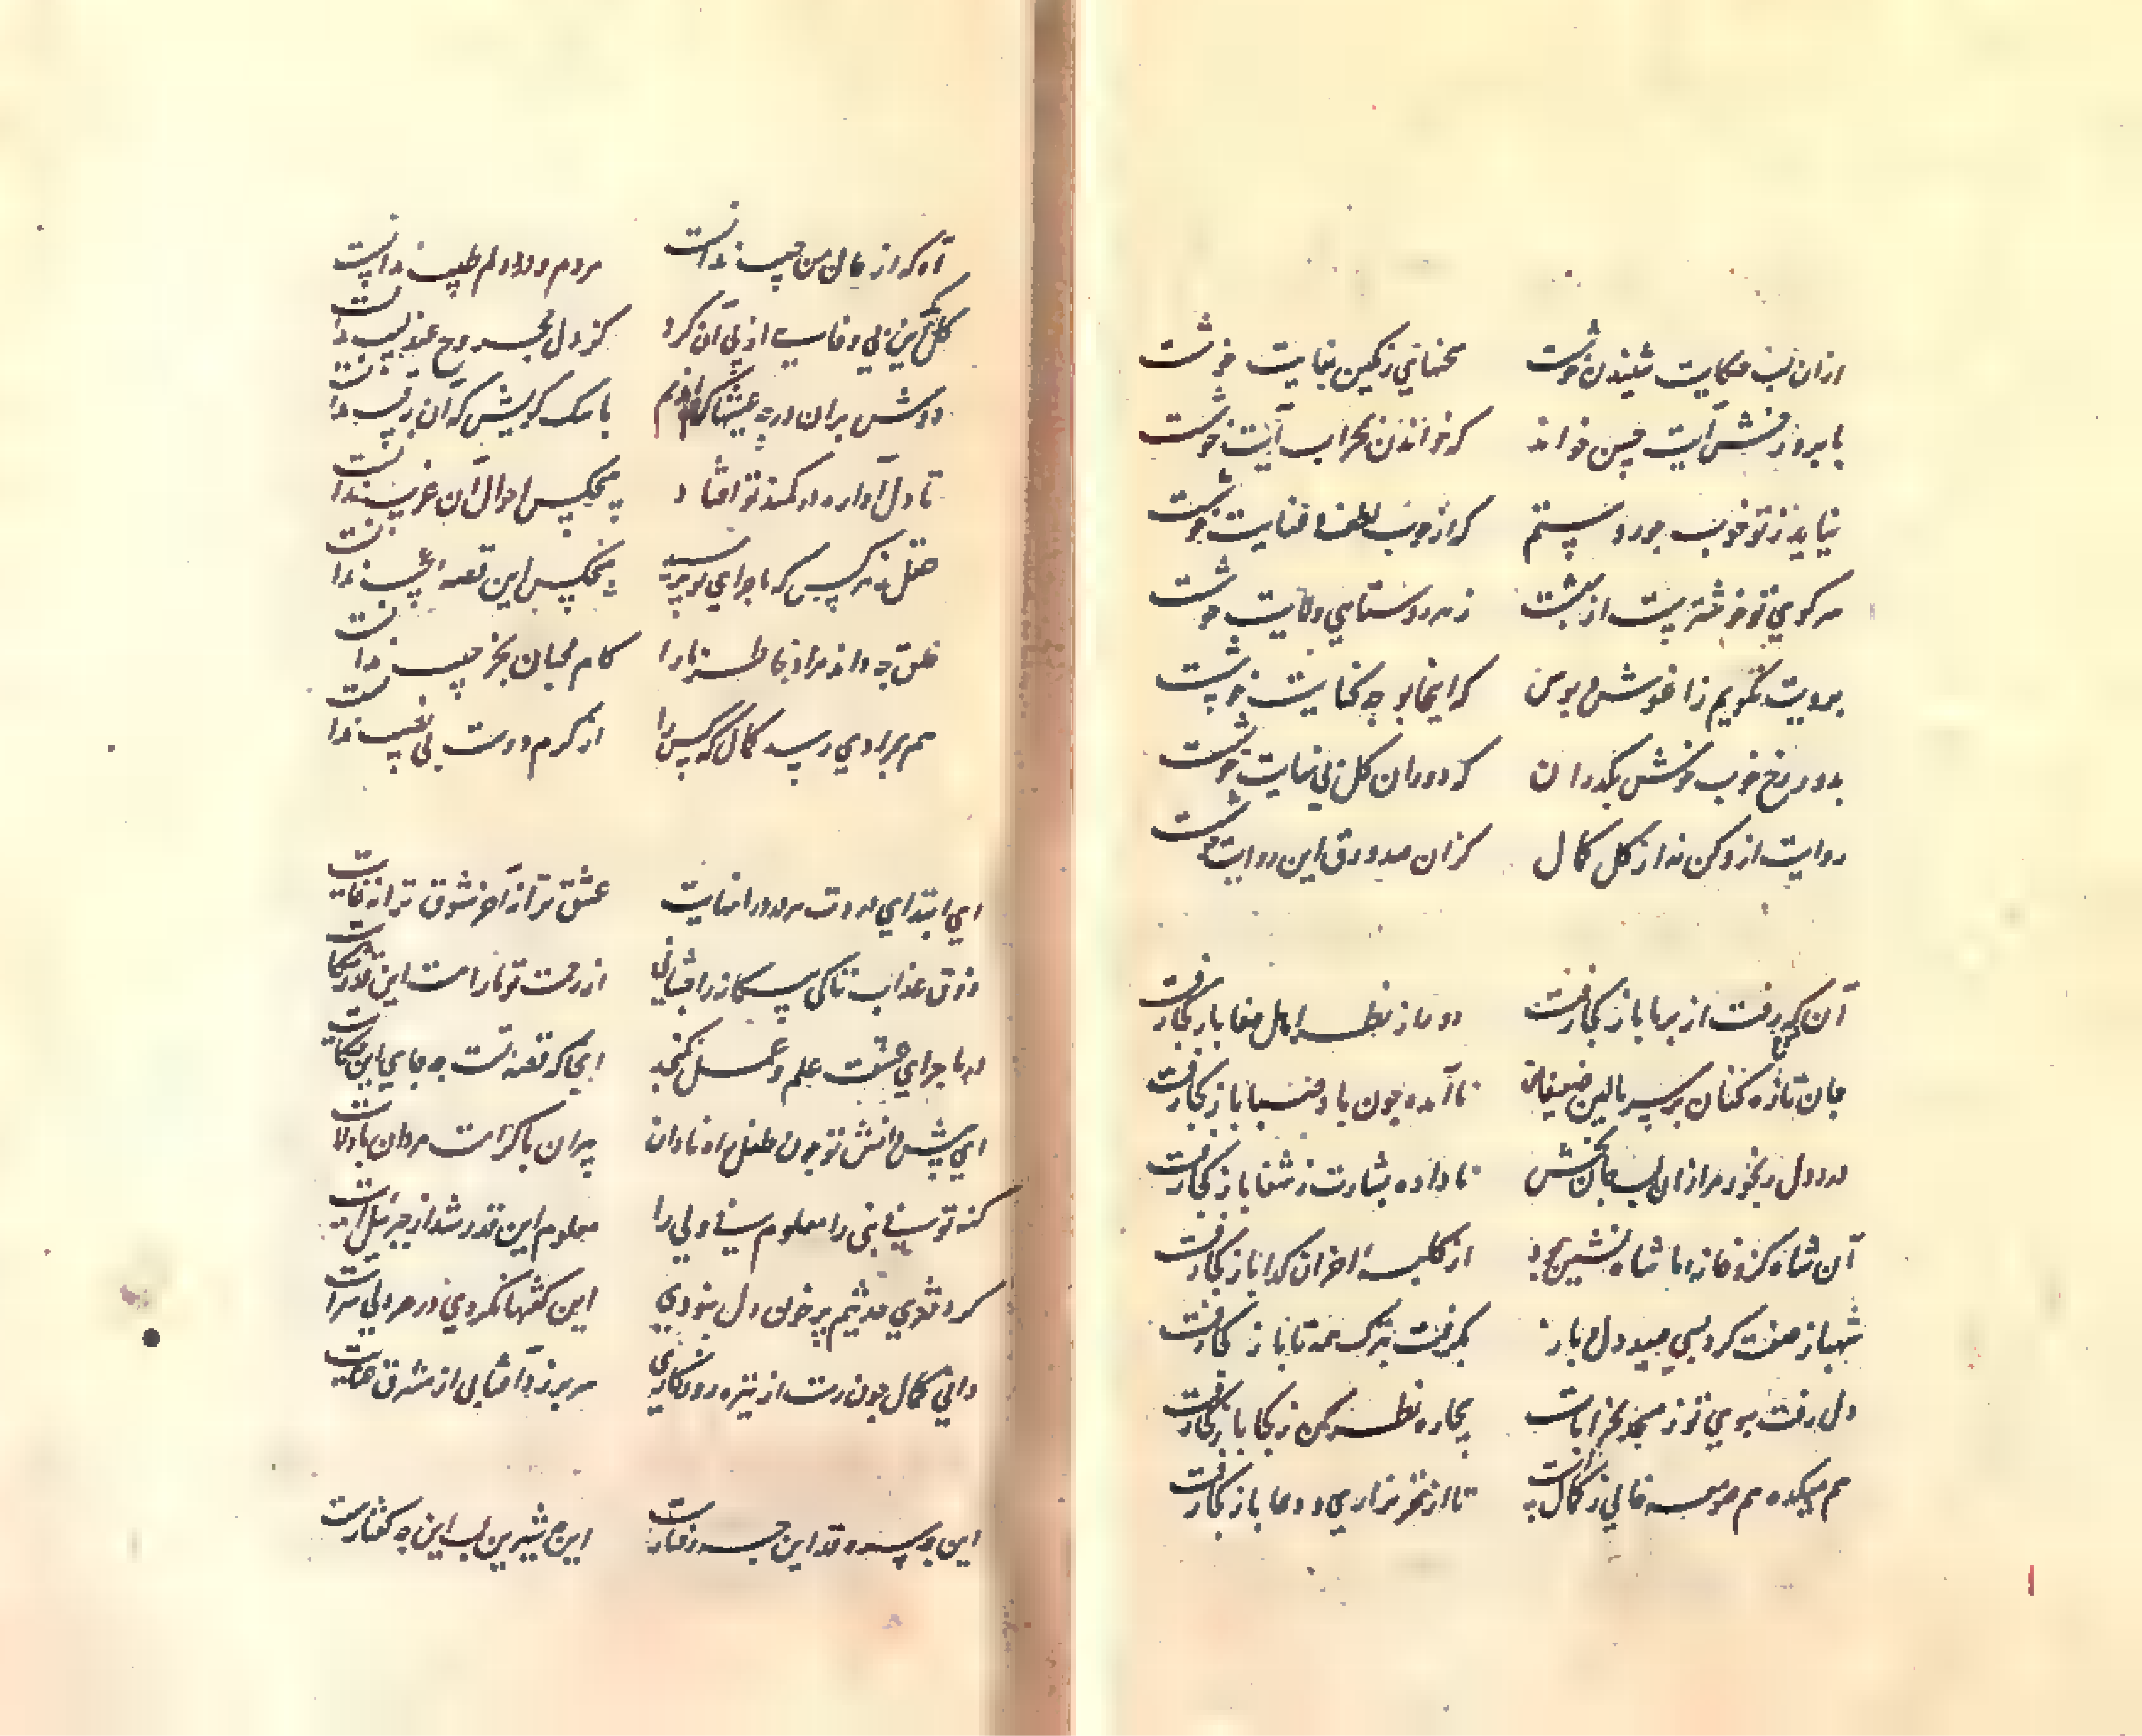 ازان لب حکایت شنیدن خوشت سخنهای رنگین بغایت خوشت
با برو زخش آیت حسن خواند که خواندن بمحراب آیت خوشت
نیاید ز تو خوب جور و ستم که از خوب لطف و عنایت خوشت
سر کوی تو خوشترست از بهشت ز هر روستایی ولایت خوشت
برویت نگویم ز اغوش و بوس که اینجا بوجه کنایت خوشت
بدور رخ خوب خوش بگذران که دوران گل بی نهایت خوشت
روایت ازو کن نه از گل کمال کزان صد ورق این روایت خوشت
آن کو برفت از بر ما باز کجا رفت دور از نظر اهل صفا باز کجا رفت
جان تازه کنان بر سر بالین ضعیفان ناآمده چون باد صبا باز کجا رفت
درد دل رنجور مرا زان لب جان بخش ناداده بشارت ز شفا باز کجا رفت
آن شاه کزو خانه ما شاه نشین بود از کلبه احزان گدا باز کجا رفت
شهباز صفت کرد بسی صید دل باز بگرفت بترک همه تا باز کجا رفت
دل رفت ببوی تو ز مسجد بخرابات بیچاره نظر کن ز کجا باز کجا رفت
هم میکده هم صومعه خالی ز کمال است تا از نظر زاری و دعا باز کجا رفت
آه که از حال من حبیب ندانست مردم و درد دلم طبیب ندانست
گل همگین بی وفایی از پی آن کرد کز دل مجروح عندلیب ندانست
دوش بران در چه عیشها که نراندم با سگ کویش که آن رقیب ندانست
تا دل آواره در کمند تو افتاد هیچکس احوال آن غریب ندانست
عقل ز هر کس که ماجرای تو پرسید هیچکس این قصه عجیب ندانست
خلق چه داند مراد خاطر ما را کام محبان بجز حبیب ندانست
هم بمرادی رسد کمال که کس را از کرم دوست بی نصیب ندانست
ای ابتدای دردت هر درد را نهایت عشق ترا نه آخر شوق ترا نه غایت
ذوق عذاب تا کی بیگانه را چشانی از رحمت تو ما را هست این قدر شکایت
در ماجرای عشقت علم و عمل نگنجد اینجا که قصه تست چه جای این حکایت
ای پیش دانش تو چون طفل راه نادان پیران با کرامت مردان با ولایت
کنه تو نیست نبی را معلوم نی ولی را معلوم این قدر شد از جبرئیل و آیت
کرد توی قدیم پر خون دل نبودی این کشتها نکردی در هر دلی سرایت
دانی کمال چون رست از تیره روزگاری سر بر زد آفتابی از مشرق عنایت
این چه سرو قد این چه رفتارست این چه شیرین لب این چه گفتارست